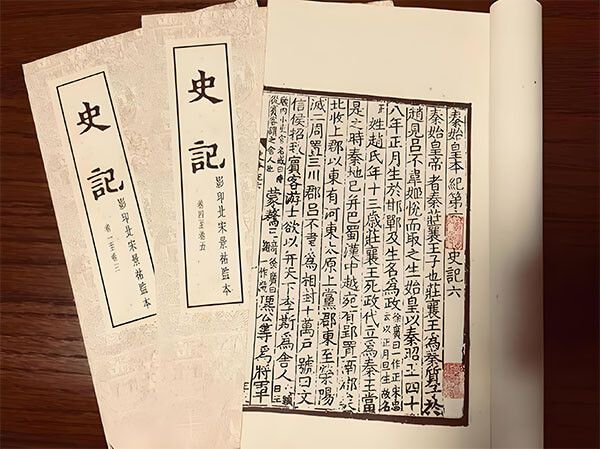 史記
影印北宋景祐監本
卷一至卷三
史記
影印北宋景祐監本
卷四至卷五
秦始皇本紀第六 史記六
秦始皇帝者秦莊襄王子也莊襄王為秦質子於
趙見呂不韋姬悅而取之生始皇以秦昭王四十
八年正月生於邯鄲及生名為政徐廣曰一作正宋忠云以正月旦生故名
姓趙氏年十三歲莊襄王死政代立為秦王當
是之時秦地已并巴蜀漢中越宛有郢置南郡矣
北收上郡以東有河東太原上黨郡東至滎陽
滅二周置三川郡呂不韋為相封十萬戶號曰文
信侯招致賓客游士欲以并天下李斯為舍人
蒙驁 徐廣曰一作 麃公等為將軍